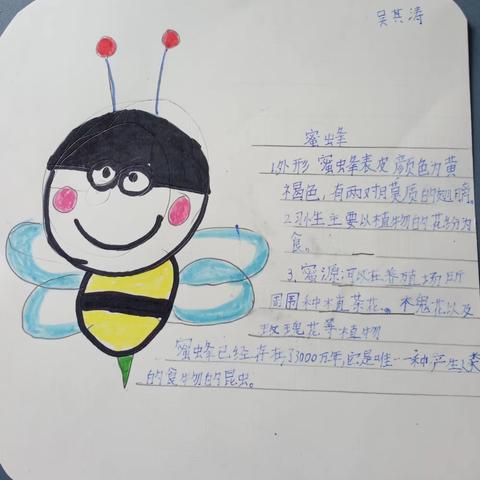 吴其涛
蜜虫峰
1.外形 蜜虫峰表皮颜色为黄
褐色,有两对膜质的翅膀。
2.习性主要以植物的花粉为
食。
3.蜜源:可以在养殖场所
周围种植菜花、木鬼花以及
玫瑰花等植物
蜜蜂已经存在了3000万年,它是唯一一种产生人类
的食物的昆虫。